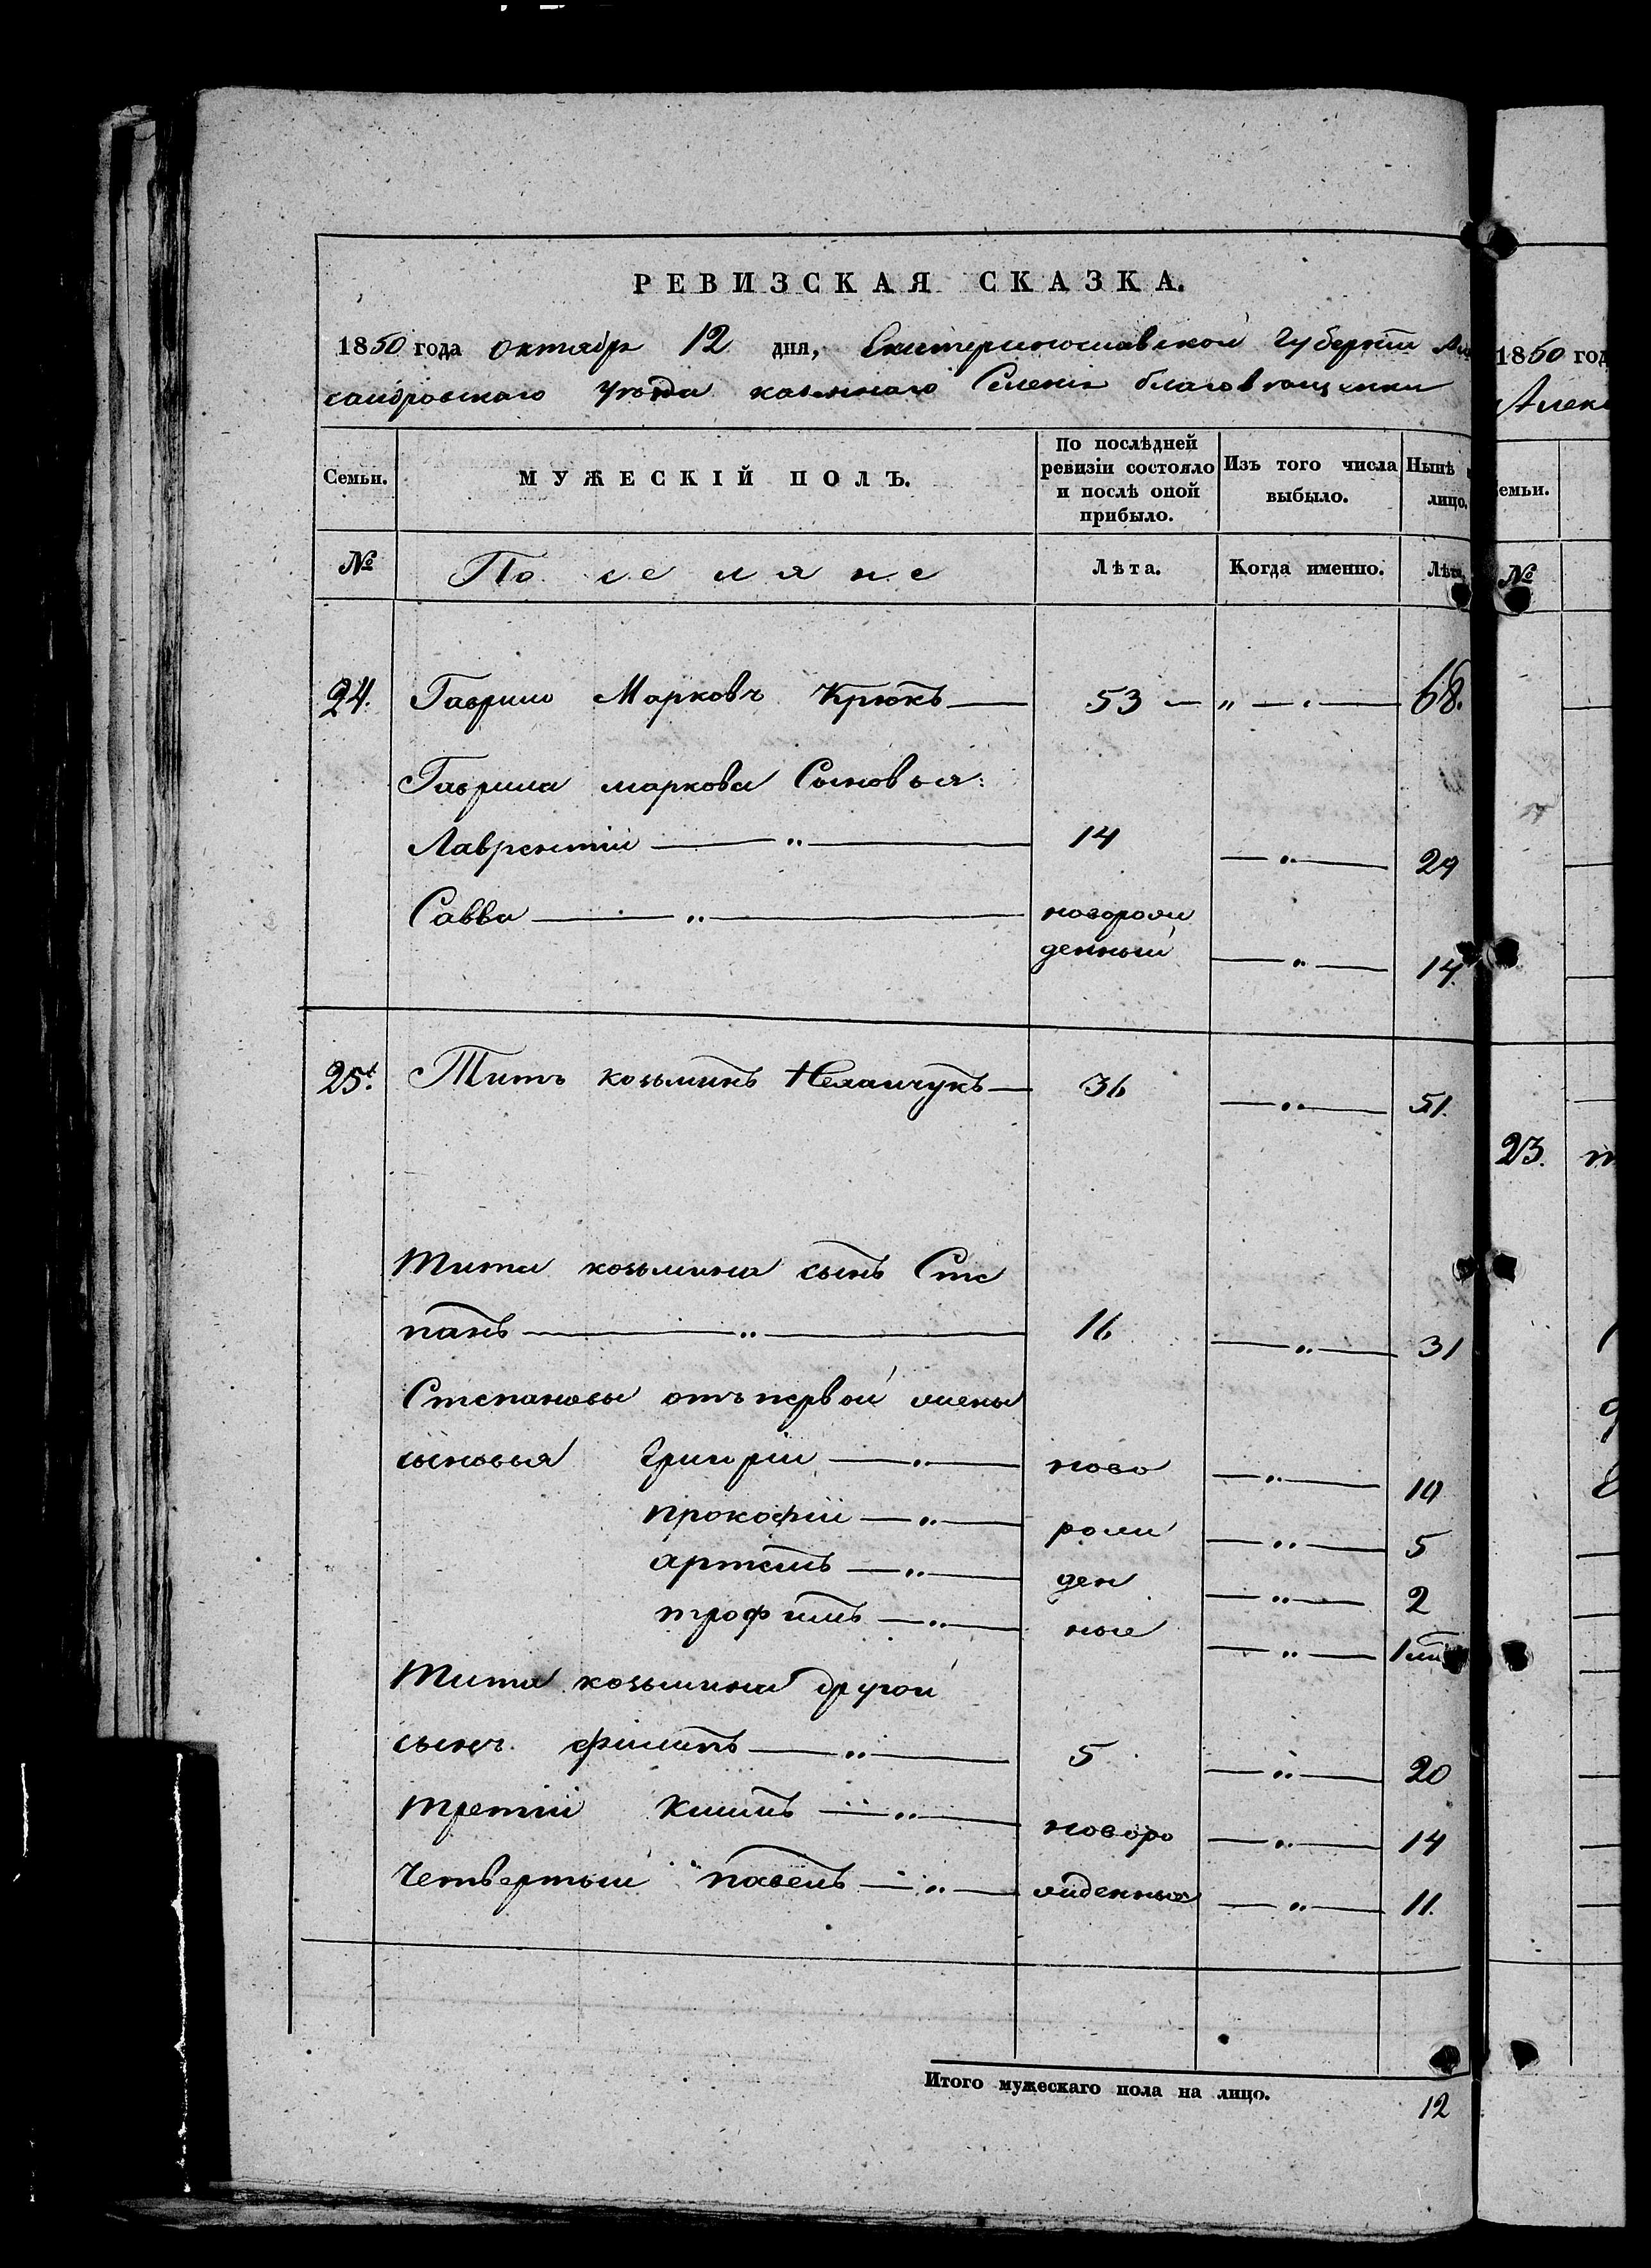 РЕВИЗСКАЯ СКАЗКА.
1850 года октября 12 дня, Екатеринославской Губернїи Алек
сандровскаго Уѣзда казеннаго Селенія благовѣщенки
Семьи. МУЖЕСКІЙ ПОЛЪ. По послѣдней ревизіи состояло и послѣ оной прибыло. Изъ того числа выбыло. Нынѣ лицо.
№ Поселяне Лѣта. Когда именно. Лѣта.
24. Гаврило Марковъ Крюкъ 53 — „ — 68.
Гаврила маркова Сыновья:
Лаврентій — „ — 14 — „ — 29
Савва — „ — новорож
денный — „ — 14
25. Титъ козьминъ 36 — „ — 51.
Тита козьмина сынъ Сте
панъ — „ — 16 — „ — 31
Степановы отъ первой жены
сыновья Григорій — „ — ново — „ — 10
прокофій — „ — рож — „ — 5
артемъ — „ — ден — „ — 2
трофимъ — „ — ные — „ — 1
Тита козьмина другой
сынъ филипъ — „ — 5 — „ — 20
третій Климъ — „ — новоро — „ — 14
Четвертый павелъ — „ — жденные — „ — 11.
Итого мужескаго пола на лицо. 12
1850 год
Алек
Семьи.
№
23.